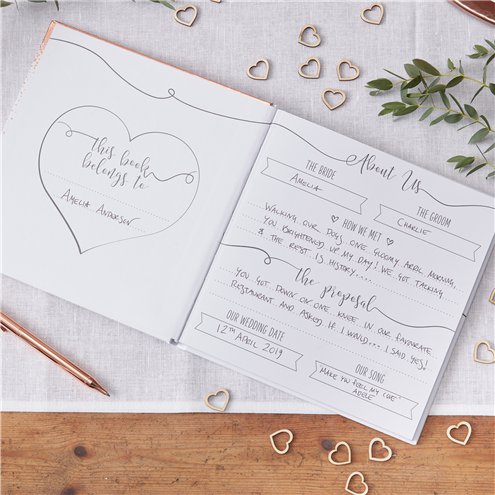 this book
belongs to
Amelia Anderson
About Us
THE BRIDE
AMELIA
THE GROOM
CHARLIE
HOW WE MET
WALKING OUR DOGS ONE GLOOMY APRIL MORNING,
YOU BRIGHTENED UP MY DAY! WE GOT TALKING
& THE REST IS HISTORY....
the proposal
YOU GOT DOWN ON ONE KNEE IN OUR FAVOURITE
RESTAURANT AND ASKED IF I WOULD... I SAID YES!
OUR WEDDING DATE
12TH APRIL 2019
OUR SONG
'MAKE YOU FEEL MY LOVE'
ADELE